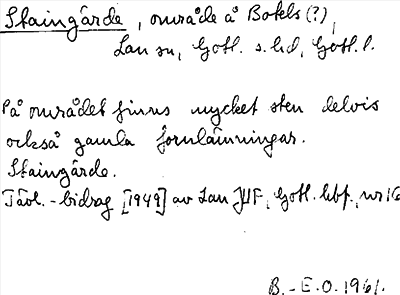 Staingårde, område å Botels(?),
Lau sn, Gotl. s. hd, Gotl. l.
På området finns mycket sten delvis
också gamla fornlämningar.
Staingårde.
Tävl.-bidrag [1949] av Lau JUF, Gotl. hbf., nr 16
B.-E.O. 1961.